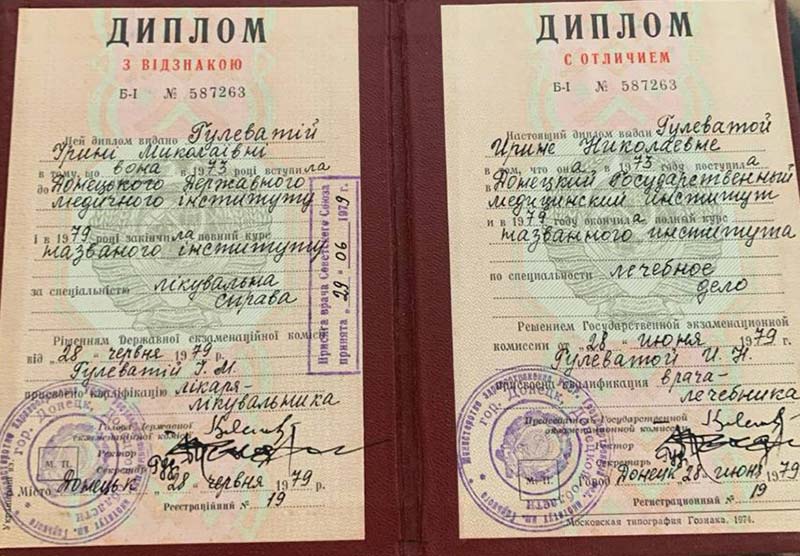 ДИПЛОМ
З ВІДЗНАКОЮ
Б-І № 587263
Цей диплом видано Гулеватій
Ірині Миколаївні
в тому, що вона в 1973 році вступила
до Донецького Державного
медичного інституту
і в 1979 році закінчила повний курс
названого інституту
за спеціальністю лікувальна
справа
Рішенням Державної екзаменаційної комісії
від „28“ червня 1979 р.
Гулеватій І. М.
присвоєно кваліфікацію лікаря-
лікувальника
Голова Державної
екзаменаційної комісії
Ректор
Секретар
М. П.
Місто Донецьк „28“ червня 1979 р.
Реєстраційний № 19
Присяга врача Советского Союза
принята „29“ 06 1979 г.
ДИПЛОМ
С ОТЛИЧИЕМ
Б-І № 587263
Настоящий диплом выдан Гулеватой
Ирине Николаевне
в том, что она в 1973 году поступила
в Донецкий Государственный
медицинский институт
и в 1979 году окончила полный курс
названного института
по специальности лечебное
дело
Решением Государственной экзаменационной
комиссии от „28“ июня 1979 г.
Гулеватой И. Н.
присвоена квалификация врача-
лечебника
Председатель Государственной
экзаменационной комиссии
Ректор
Секретарь
М. П.
Город Донецк 28 „июня 1979 г.
Регистрационный № 19
Московская типография Гознака. 1974.